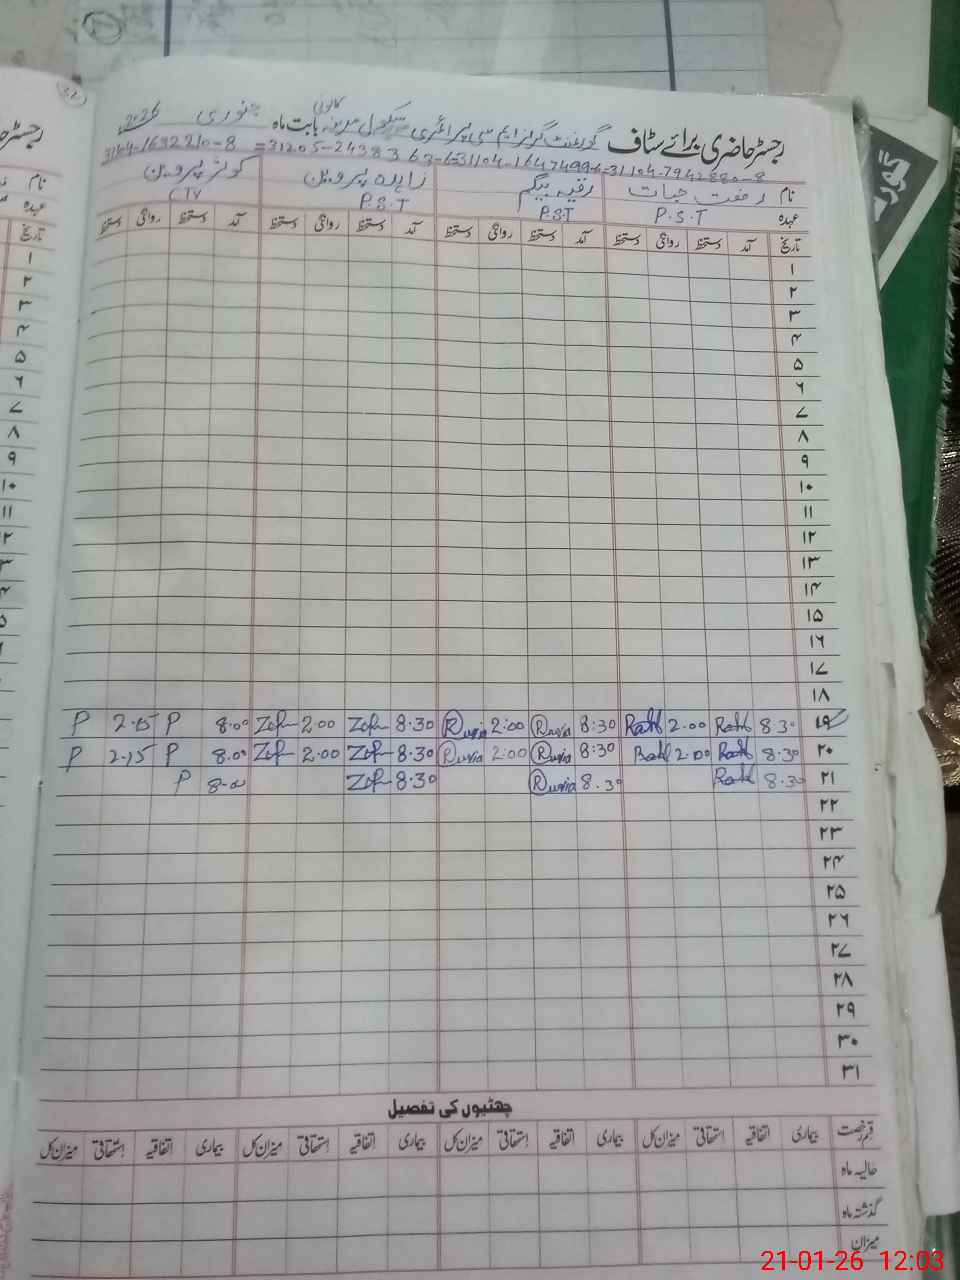 رجسٹر حاضری برائے سٹاف گورنمنٹ گرلز ایم سی پرائمری سکول مدینہ کالونی بابت ماہ جنوری 2026
31104-7942880-8 31104-1647499-6 31205-2438363-6 3164-1632210-8
نام رفعت حیات رقیہ بیگم زاہدہ پروین کوثر پروین
عہدہ P.S.T P.S.T P.S.T CIV
تاریخ آمد دستخط روانگی دستخط آمد دستخط روانگی دستخط آمد دستخط روانگی دستخط آمد دستخط روانگی دستخط
۱
۲
۳
۴
۵
۶
۷
۸
۹
۱۰
۱۱
۱۲
۱۳
۱۴
۱۵
۱۶
۱۷
۱۸
۱۹ 8.30 2.00 8:30 2:00 8.30 2.00 8.00 P 2.15 P
۲۰ 8.30 2.00 8:30 2:00 8.30 2.00 8.00 P 2.15 P
۲۱ 8.30 8.30 8.30 8.00 P
۲۲
۲۳
۲۴
۲۵
۲۶
۲۷
۲۸
۲۹
۳۰
۳۱
چھٹیوں کی تفصیل
قسم رخصت بیماری اتفاقیہ استحقاقی میزان کل بیماری اتفاقیہ استحقاقی میزان کل بیماری اتفاقیہ استحقاقی میزان کل بیماری اتفاقیہ استحقاقی میزان کل
حالیہ ماہ
گذشتہ ماہ
میزان
21-01-26 12:03